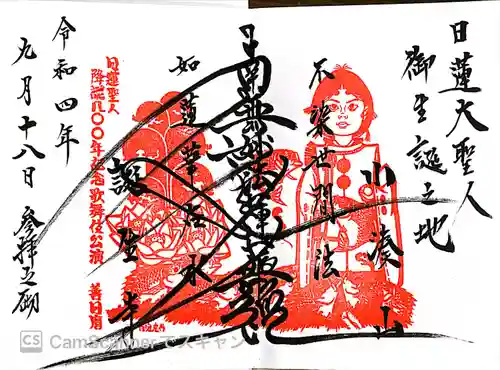 日蓮大聖人
御生誕之地
小湊山
不染世間法
南無妙法蓮華経
如蓮華在水
誕生寺
日蓮聖人
降誕八〇〇年記念歌舞伎公演
善日麿
令和四年
九月十八日 参拝之砌
CS CamScannerでスキャン